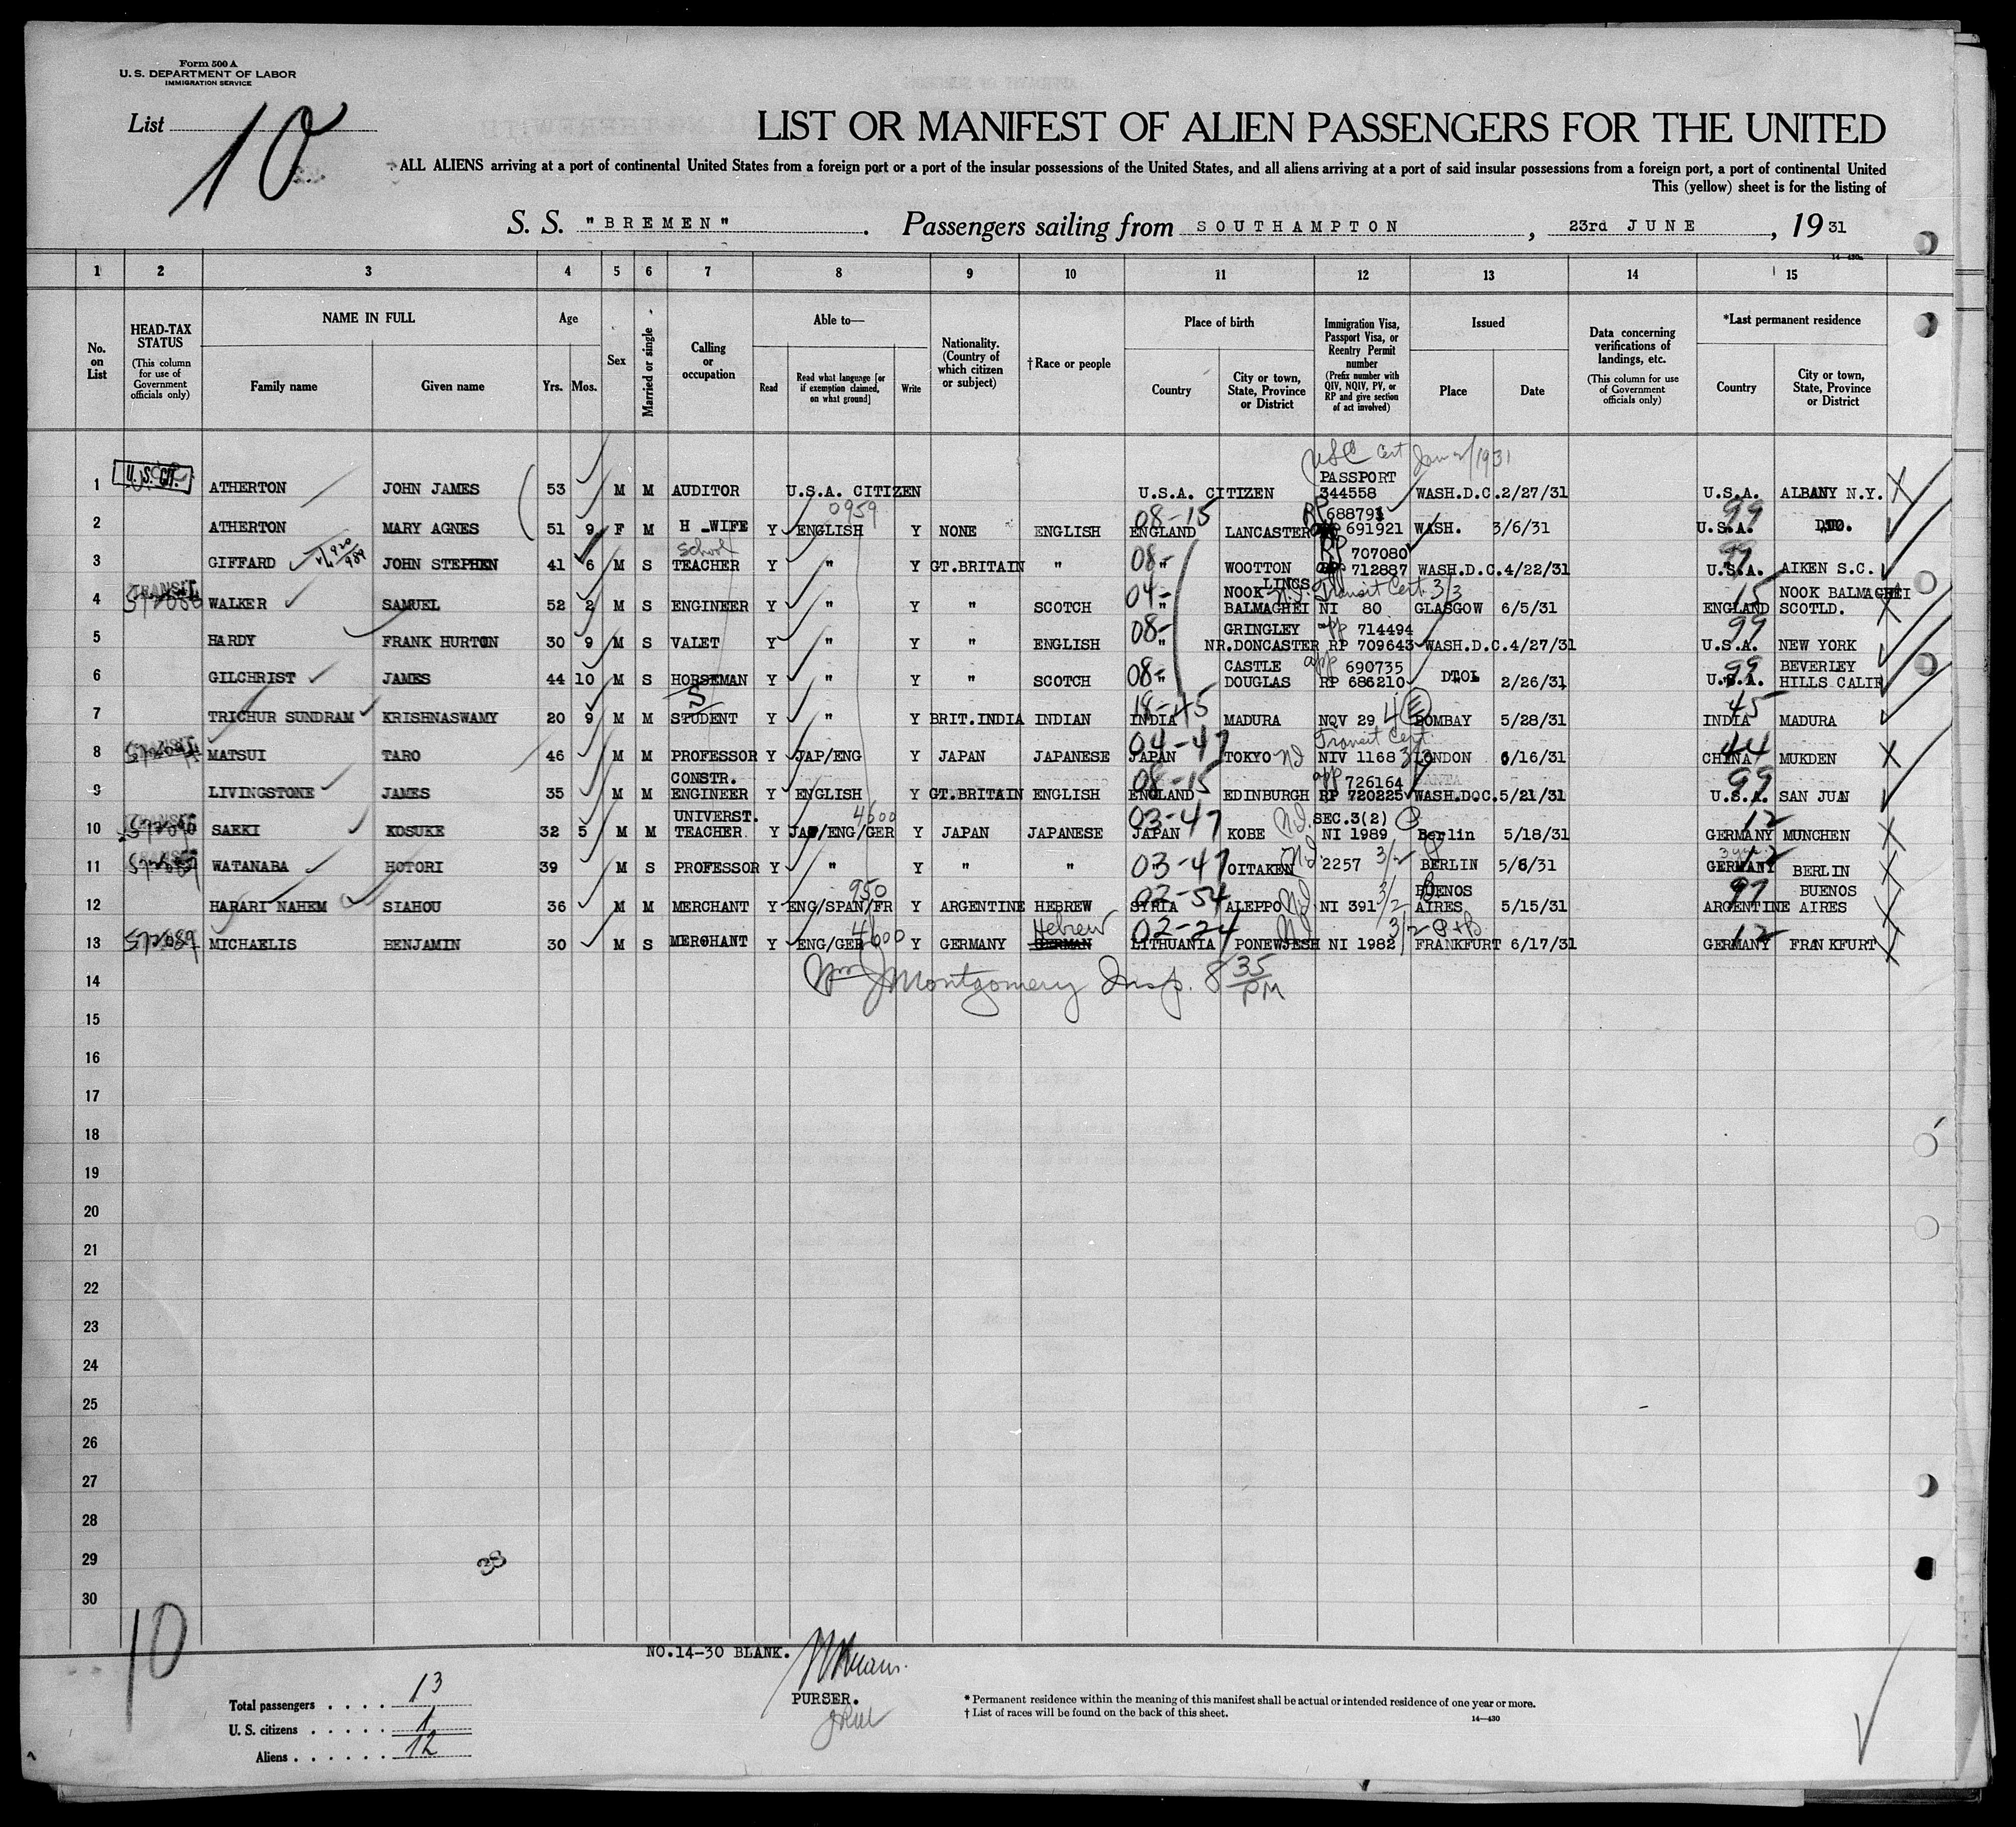 Form 500 A
U. S. DEPARTMENT OF LABOR
IMMIGRATION SERVICE
List 10
LIST OR MANIFEST OF ALIEN PASSENGERS FOR THE UNITED
ALL ALIENS arriving at a port of continental United States from a foreign port or a port of the insular possessions of the United States, and all aliens arriving at a port of said insular possessions from a foreign port, a port of continental United
This (yellow) sheet is for the listing of
S. S. "BREMEN". Passengers sailing from SOUTHAMPTON, 23rd JUNE, 1931
14-430a
1 2 3 4 5 6 7 8 9 10 11 12 13 14 15
No. on List
HEAD-TAX STATUS (This column for use of Government officials only)
NAME IN FULL
Family name Given name
Age
Yrs. Mos.
Sex
Married or single
Calling or occupation
Able to—
Read Read what language [or if exemption claimed, on what ground] Write
Nationality. (Country of which citizen or subject)
†Race or people
Place of birth
Country City or town, State, Province or District
Immigration Visa, Passport Visa, or Reentry Permit number (Prefix number with QIV, NQIV, PV, or RP and give section of act involved)
Issued
Place Date
Data concerning verifications of landings, etc. (This column for use of Government officials only)
*Last permanent residence
Country City or town, State, Province or District
USC Cert Jan 2/1931
1 U.S. CIT. ATHERTON JOHN JAMES 53 M M AUDITOR U.S.A. CITIZEN U.S.A. CITIZEN PASSPORT 344558 WASH.D.C. 2/27/31 U.S.A. ALBANY N.Y.
0959 08-15 RP 688793 99
2 ATHERTON MARY AGNES 51 9 F M H_WIFE Y ENGLISH Y NONE ENGLISH ENGLAND LANCASTER 691921 WASH. 3/6/31 U.S.A. DTO.
School 08- RP 707080 99
3 GIFFARD JOHN STEPHEN 41 6 M S TEACHER Y " Y GT.BRITAIN " " WOOTTON 712887 WASH.D.C. 4/22/31 U.S.A. AIKEN S.C.
TRANSIT 04- NOOK LINCS. Transit Cert. 3/3 15 NOOK BALMAGHEI
4 WALKER SAMUEL 52 2 M S ENGINEER Y " Y " SCOTCH " BALMAGHEI NI 80 GLASGOW 6/5/31 ENGLAND SCOTLD.
08- GRINGLEY app 714494 99
5 HARDY FRANK HURTON 30 9 M S VALET Y " Y " ENGLISH " NR.DONCASTER RP 709643 WASH.D.C. 4/27/31 U.S.A. NEW YORK
08- CASTLE app 690735 99 BEVERLEY
6 GILCHRIST JAMES 44 10 M S HORSEMAN Y " Y " SCOTCH " DOUGLAS RP 686210 2/26/31 U.S.A. HILLS CALIF
S 18-45 45
7 TRICHUR SUNDRAM KRISHNASWAMY 20 9 M M STUDENT Y " Y BRIT.INDIA INDIAN INDIA MADURA NQV 29 4 E BOMBAY 5/28/31 INDIA MADURA
04-47 Transit Cert. 44
8 MATSUI TARO 46 M M PROFESSOR Y JAP/ENG Y JAPAN JAPANESE JAPAN TOKYO NIV 1168 LONDON 6/16/31 CHINA MUKDEN
CONSTR. 08-15 app 726164 99
9 LIVINGSTONE JAMES 35 M M ENGINEER Y ENGLISH Y GT.BRITAIN ENGLISH ENGLAND EDINBURGH RP 720225 WASH.D.C. 5/21/31 U.S.A. SAN JUAN
UNIVERST. 4600 03-47 SEC.3(2) 12
10 SAEKI KOSUKE 32 5 M M TEACHER Y JAP/ENG/GER Y JAPAN JAPANESE JAPAN KOBE NI 1989 Berlin 5/18/31 GERMANY MUNCHEN
11 WATANABA HOTORI 39 M S PROFESSOR Y " Y " " 03-47 OITAKEN 2257 3/2 BERLIN 5/6/31 GERMANY 12 BERLIN
950 02-54 BUENOS 97 BUENOS
12 HARARI NAHEM SIAHOU 36 M M MERCHANT Y ENG/SPAN/FR Y ARGENTINE HEBREW SYRIA ALEPPO NI 391 3/2 AIRES 5/15/31 ARGENTINE AIRES
4600 Hebrew 02-24 3/2 12
13 572089 MICHAELIS BENJAMIN 30 M S MERCHANT Y ENG/GER Y GERMANY GERMAN LITHUANIA PONEWJESH NI 1982 FRANKFURT 6/17/31 GERMANY FRANKFURT
14 Wm J Montgomery Insp. 8 35 PM
15
16
17
18
19
20
21
22
23
24
25
26
27
28
29
30
38
10
NO.14-30 BLANK.
PURSER.
Total passengers . . . . 13
U. S. citizens . . . . . 1
Aliens . . . . . . 12
* Permanent residence within the meaning of this manifest shall be actual or intended residence of one year or more.
† List of races will be found on the back of this sheet.
14—430